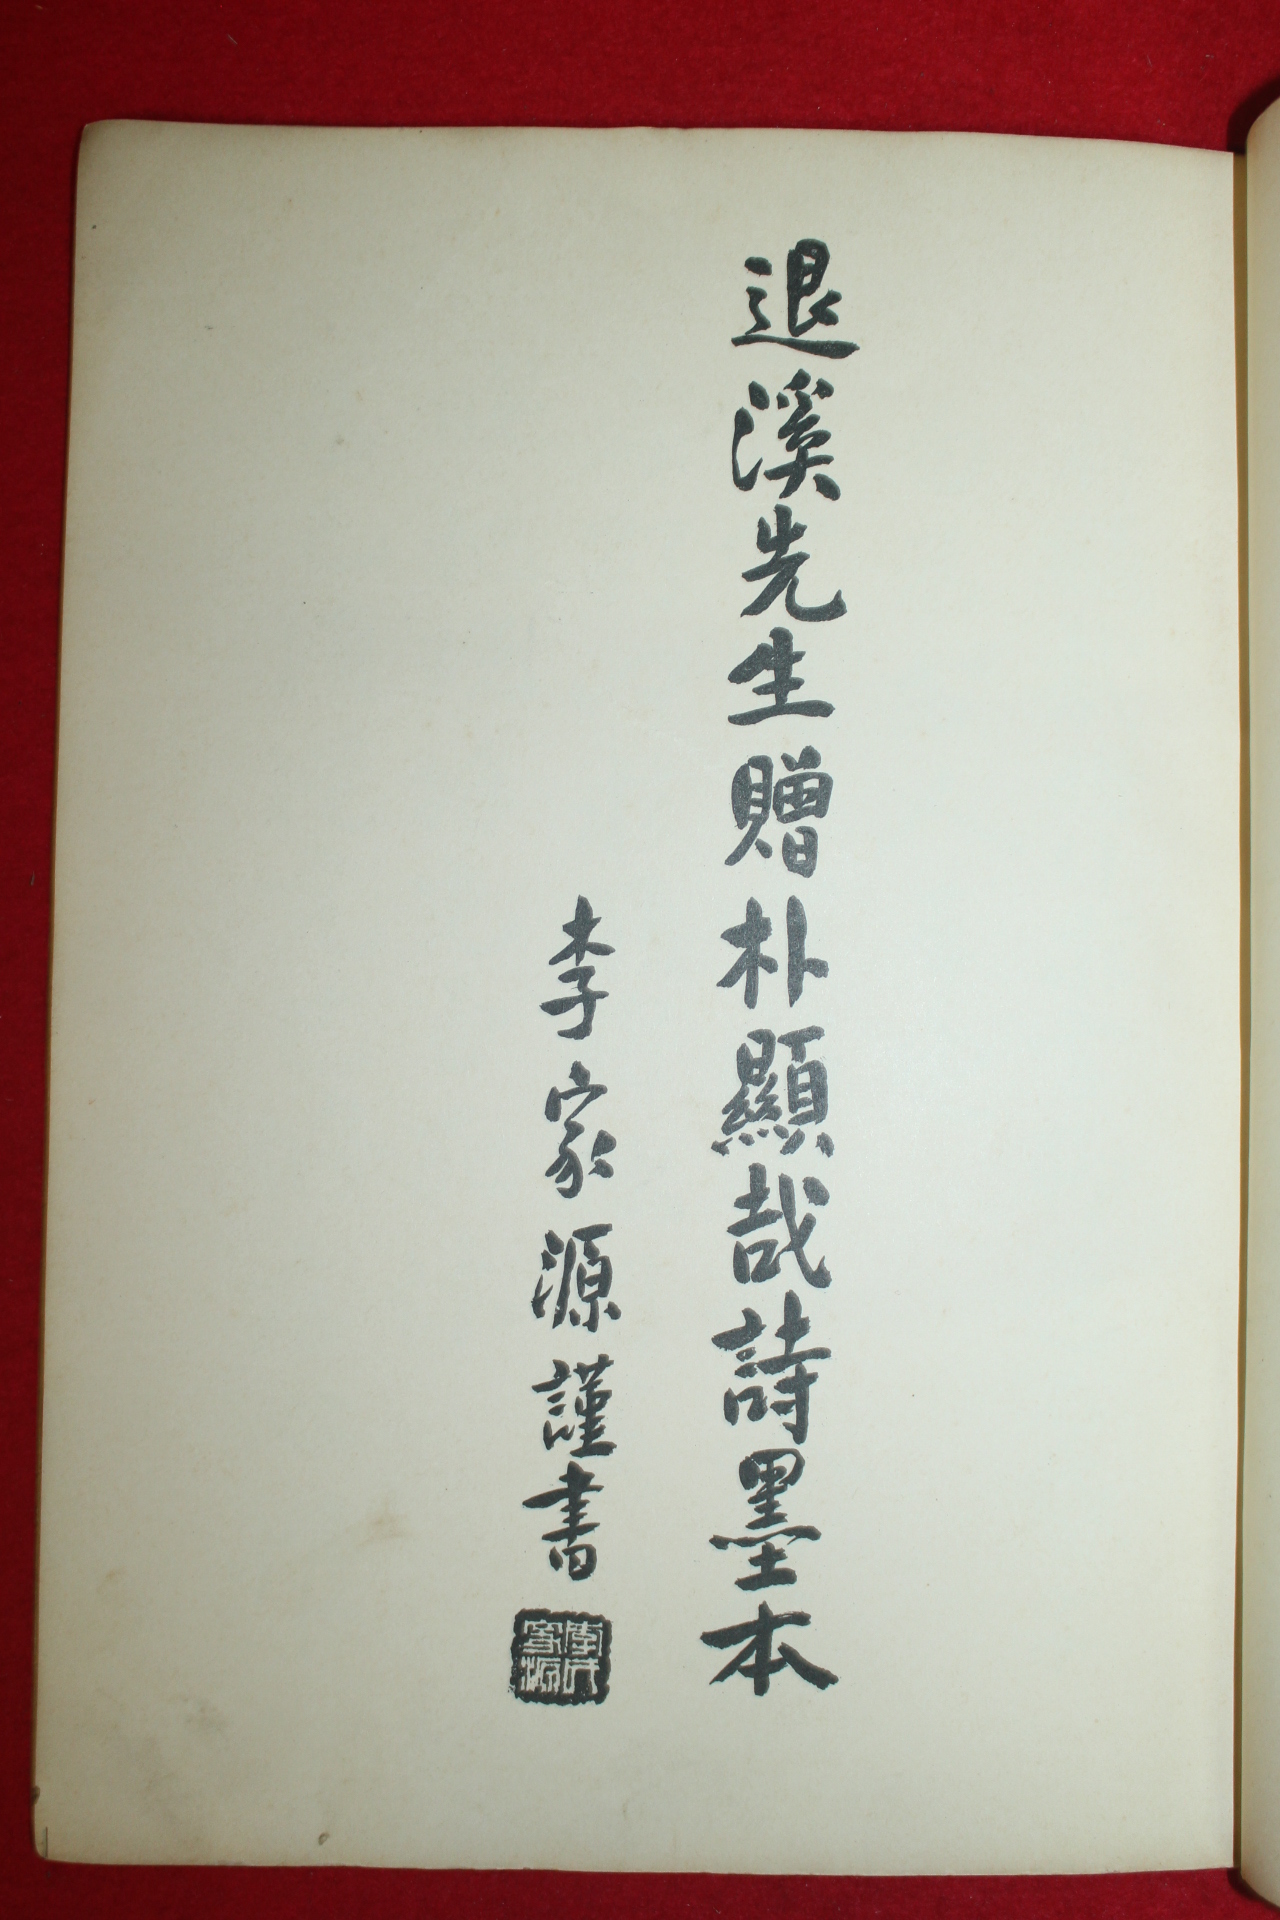 退溪先生贈朴顯哉詩墨本
李家源謹書
李氏家源